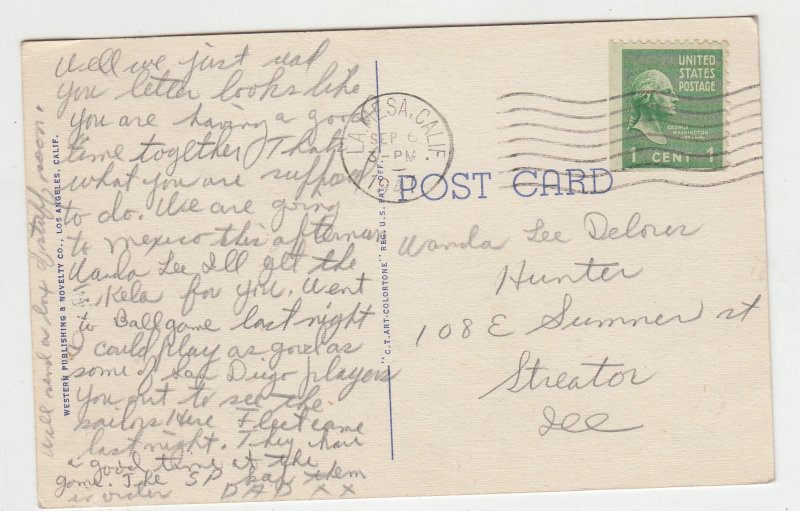 Well we just read
you letter looks like
you are having a good
time together Thats
what you are suppose
to do. We are going
to mexico this afternoon
Wanda Lee I'll get the
for you. Went
to Ball game last night
I could play as good as
some of San Diego players
You out to see the
sailors Here Fleet came
last night. They have
a good time at the
game. The SP kep them
in order DAD XX
Will send a box of stuff soon.
WESTERN PUBLISHING & NOVELTY CO., LOS ANGELES, CALIF.
"C.T. ART-COLORTONE" REG. U.S. PAT. OFF.
LA MESA, CALIF.
SEP 6
PM
UNITED
STATES
POSTAGE
GEORGE
WASHINGTON
1 CENT 1
POST CARD
Wanda Lee Delores
Hunter
108 E Sumner st
Streator
Ill